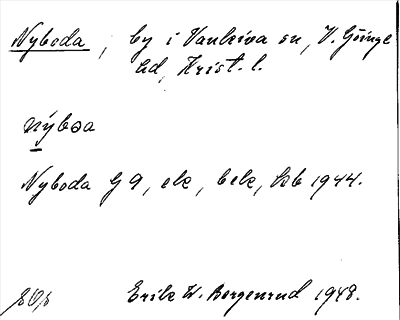 Nyboda, by i Vankiva sn, V. Göinge
hd, Krist. l.
nýbɷa
Nyboda G 9, elc, belc, hb 1944.
Erik W. Bergenrud 1948.